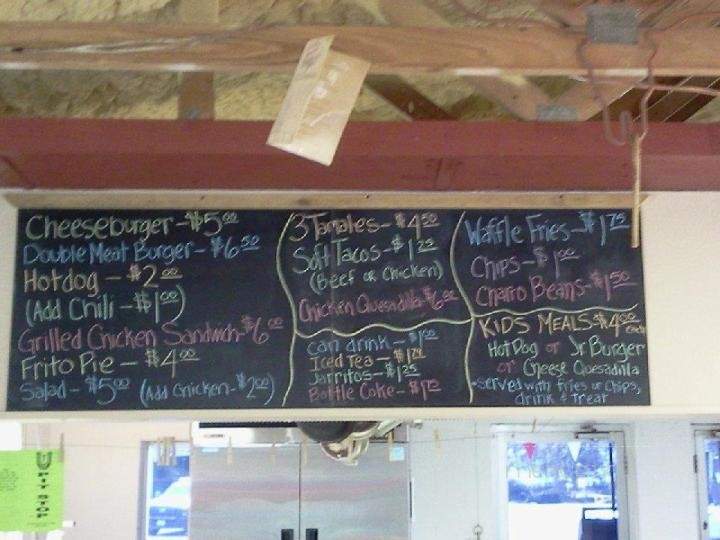 Cheeseburger - $5.00
Double Meat Burger - $6.50
Hotdog - $2.00
(Add Chili - $1.00)
Grilled Chicken Sandwich - $6.00
Frito Pie - $4.00
Salad - $5.00 (Add Chicken - $2.00)
3 Tamales - $4.50
Soft Tacos - $1.25
(Beef or Chicken)
Chicken Quesadilla - $6.00
Can drink - $1.00
Iced Tea -
Jarritos - $1.25
Bottle Coke -
Waffle Fries - $1.75
Chips - $1.00
Charro Beans - $1.50
KIDS MEALS - $4.00 each
Hot Dog or Jr Burger
or Cheese Quesadilla
*served with fries or chips,
drink & treat
PIT STOP